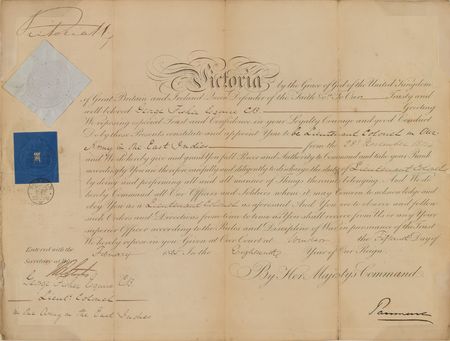 Victoria R
Victoria by the Grace of God of the United Kingdom
of Great Britain and Ireland Queen Defender of the Faith &c. To Our Trusty and
well beloved George Fisher Esquire CB Greeting
We reposing especial Trust and Confidence in your Loyalty Courage and good Conduct
Do by these Presents constitute and appoint You to be Lieutenant Colonel in Our
Army in the East Indies from the 28th November
We do hereby give and grant you full Power and Authority to Command and take your Rank
accordingly You are therefore carefully and diligently to discharge the duty of Lieutenant Colonel
by doing and performing all and all manner of things thereunto belonging And We do
hereby Command all Our Officers and Soldiers whom it may Concern to acknowledge and
obey You as a Lieutenant Colonel as aforesaid And You are to observe and follow
such Orders and Directions from time to time as You shall receive from Us or any Your
superior Officer according to the Rules and Discipline of War in pursuance of the Trust
We hereby repose in you Given at Our Court at Windsor the Fifteenth Day of
February 1855 In the Eighteenth Year of Our Reign
Entered with the
Secretary at War
By Her Majesty's Command
George Fisher Esquire CB
Lieut. Colonel
in Our Army in the East Indies
Panmure